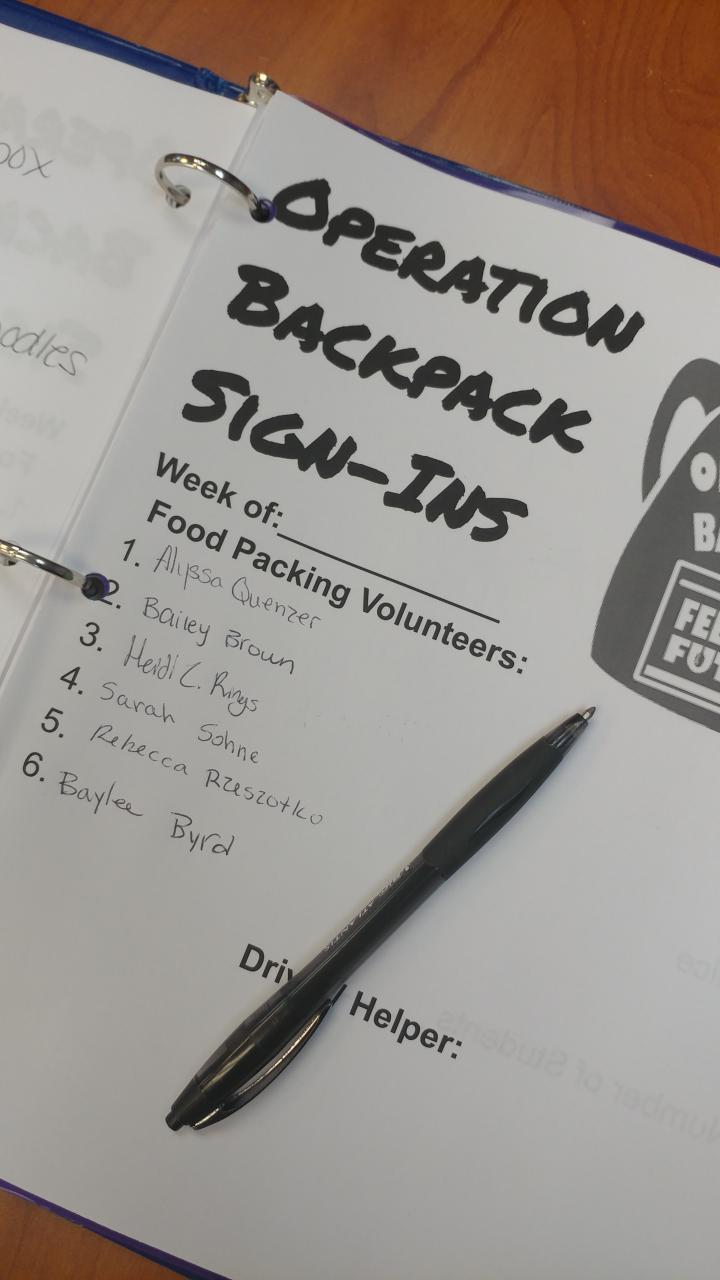 OPERATION
BACKPACK
SIGN-INS
Week of:
Food Packing Volunteers:
1. Alyssa Quenzer
2. Bailey Brown
3. Heidi L. Rings
4. Sarah Sohne
5. Rebecca Rzeszotko
6. Baylee Byrd
Helper:
Number of Students